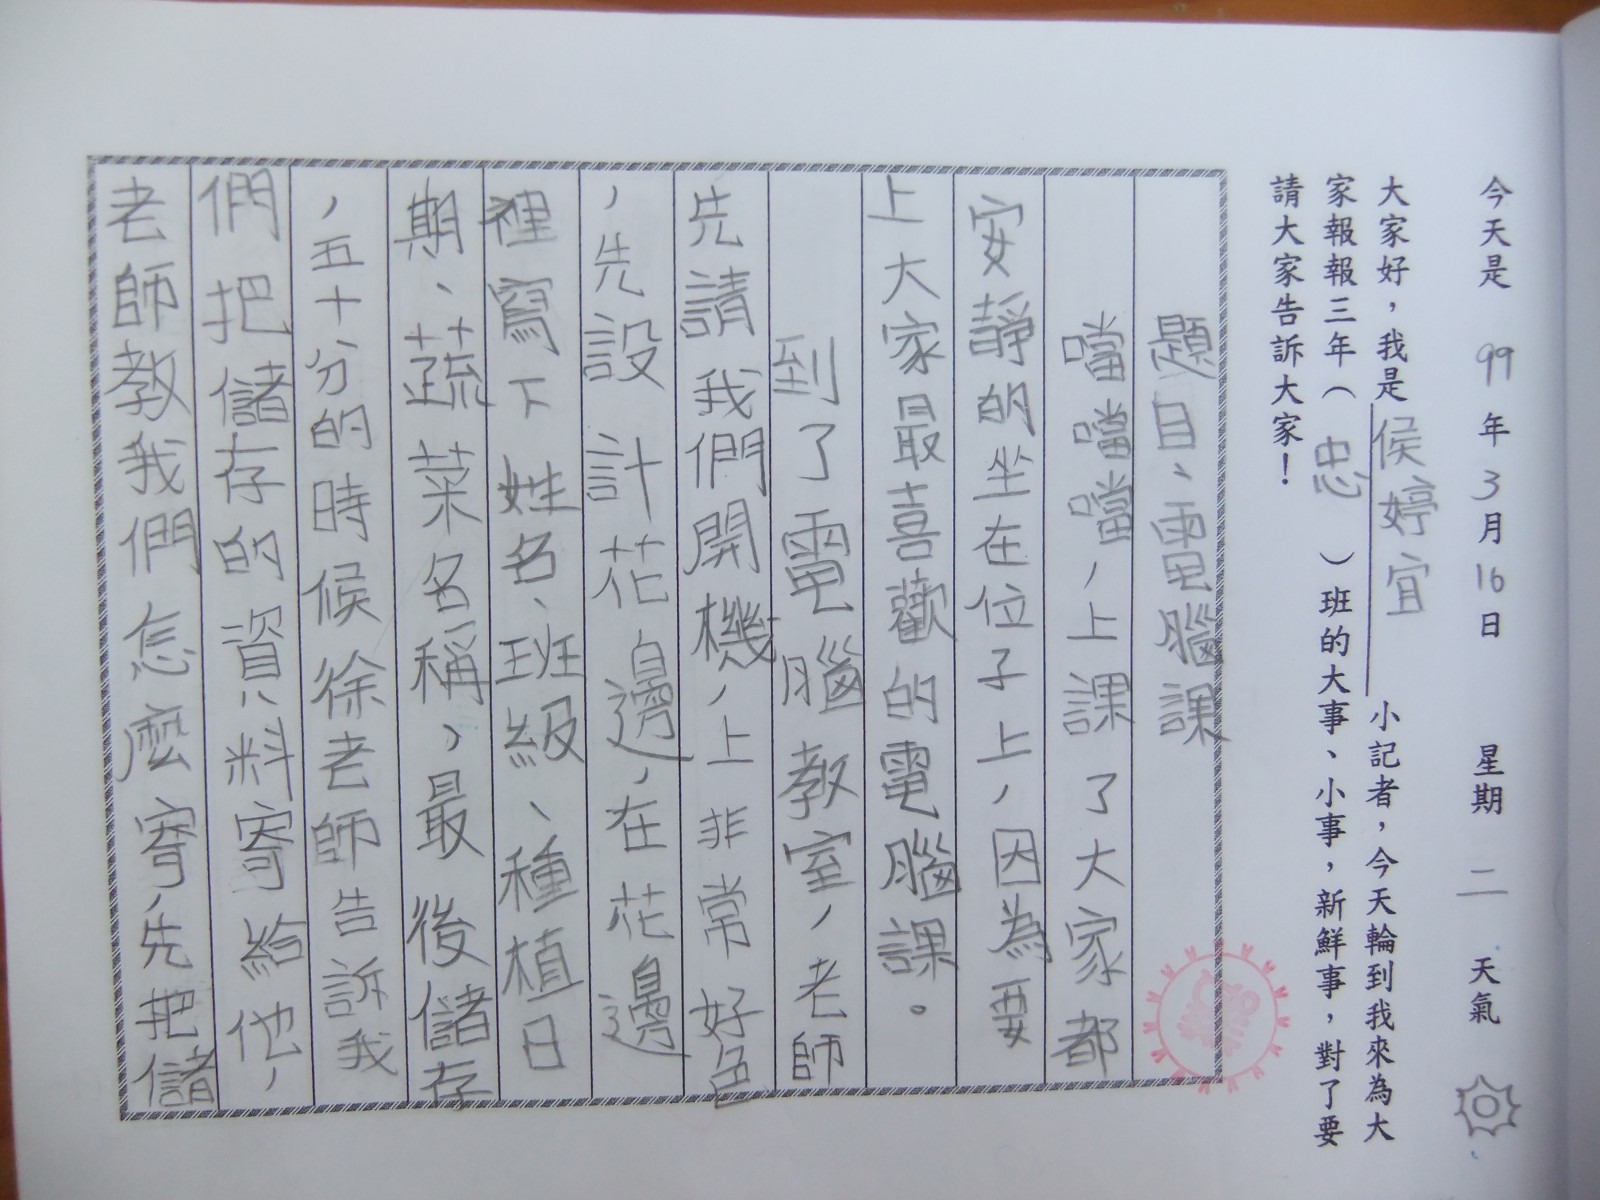 今天是 99年3月16日 星期二 天氣
大家好，我是侯婷宜小記者，今天輪到我來為大
家報報三年（忠）班的大事、小事，新鮮事，對了要
請大家告訴大家！
題目、電腦課
噹噹噹，上課了大家都
安靜的坐在位子上，因為要
上大家最喜歡的電腦課。
到了電腦教室，老師
先請我們開機，上非常好色
，先設計花邊，在花邊
裡寫下姓名、班級、種植日
期、蔬菜名稱、最後儲存
，五十分的時候徐老師告訴我
們把儲存的資料寄給他，
老師教我們怎麼寄，先把儲